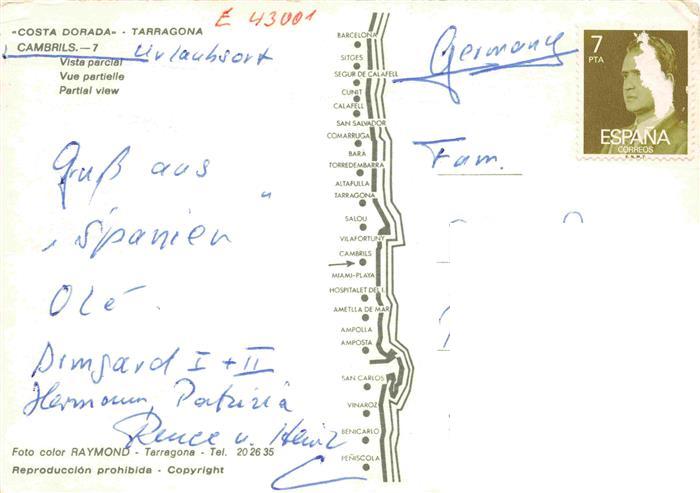 E 43001
«COSTA DORADA» - TARRAGONA
CAMBRILS.—7 Urlaubsort
Vista parcial
Vue partielle
Partial view
Gruß aus
„Spanien“
Olé.
Irmgard I + II
Hermann, Patrizia
Renee u. Heinz
Foto color RAYMOND - Tarragona - Tel. 20 26 35
Reproducción prohibida - Copyright
BARCELONA
SITGES
SEGUR DE CALAFELL
CUNIT
CALAFELL
SAN SALVADOR
COMARRUGA
BARA
TORREDEMBARRA
ALTAFULLA
TARRAGONA
SALOU
VILAFORTUNY
CAMBRILS
MIAMI-PLAYA
HOSPITALET DEL I.
AMETLLA DE MAR
AMPOLLA
AMPOSTA
SAN CARLOS
VINAROZ
BENICARLO
PEÑISCOLA
Germany
Fam.
7
PTA
ESPAÑA
CORREOS